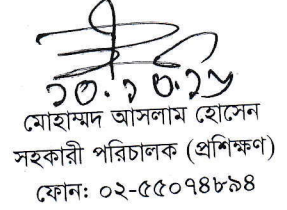 মোহাম্মদ আসলাম হোসেন
সহকারী পরিচালক (প্রশিক্ষণ)
ফোন: ০২-৫৫০৭৪৮৯৪